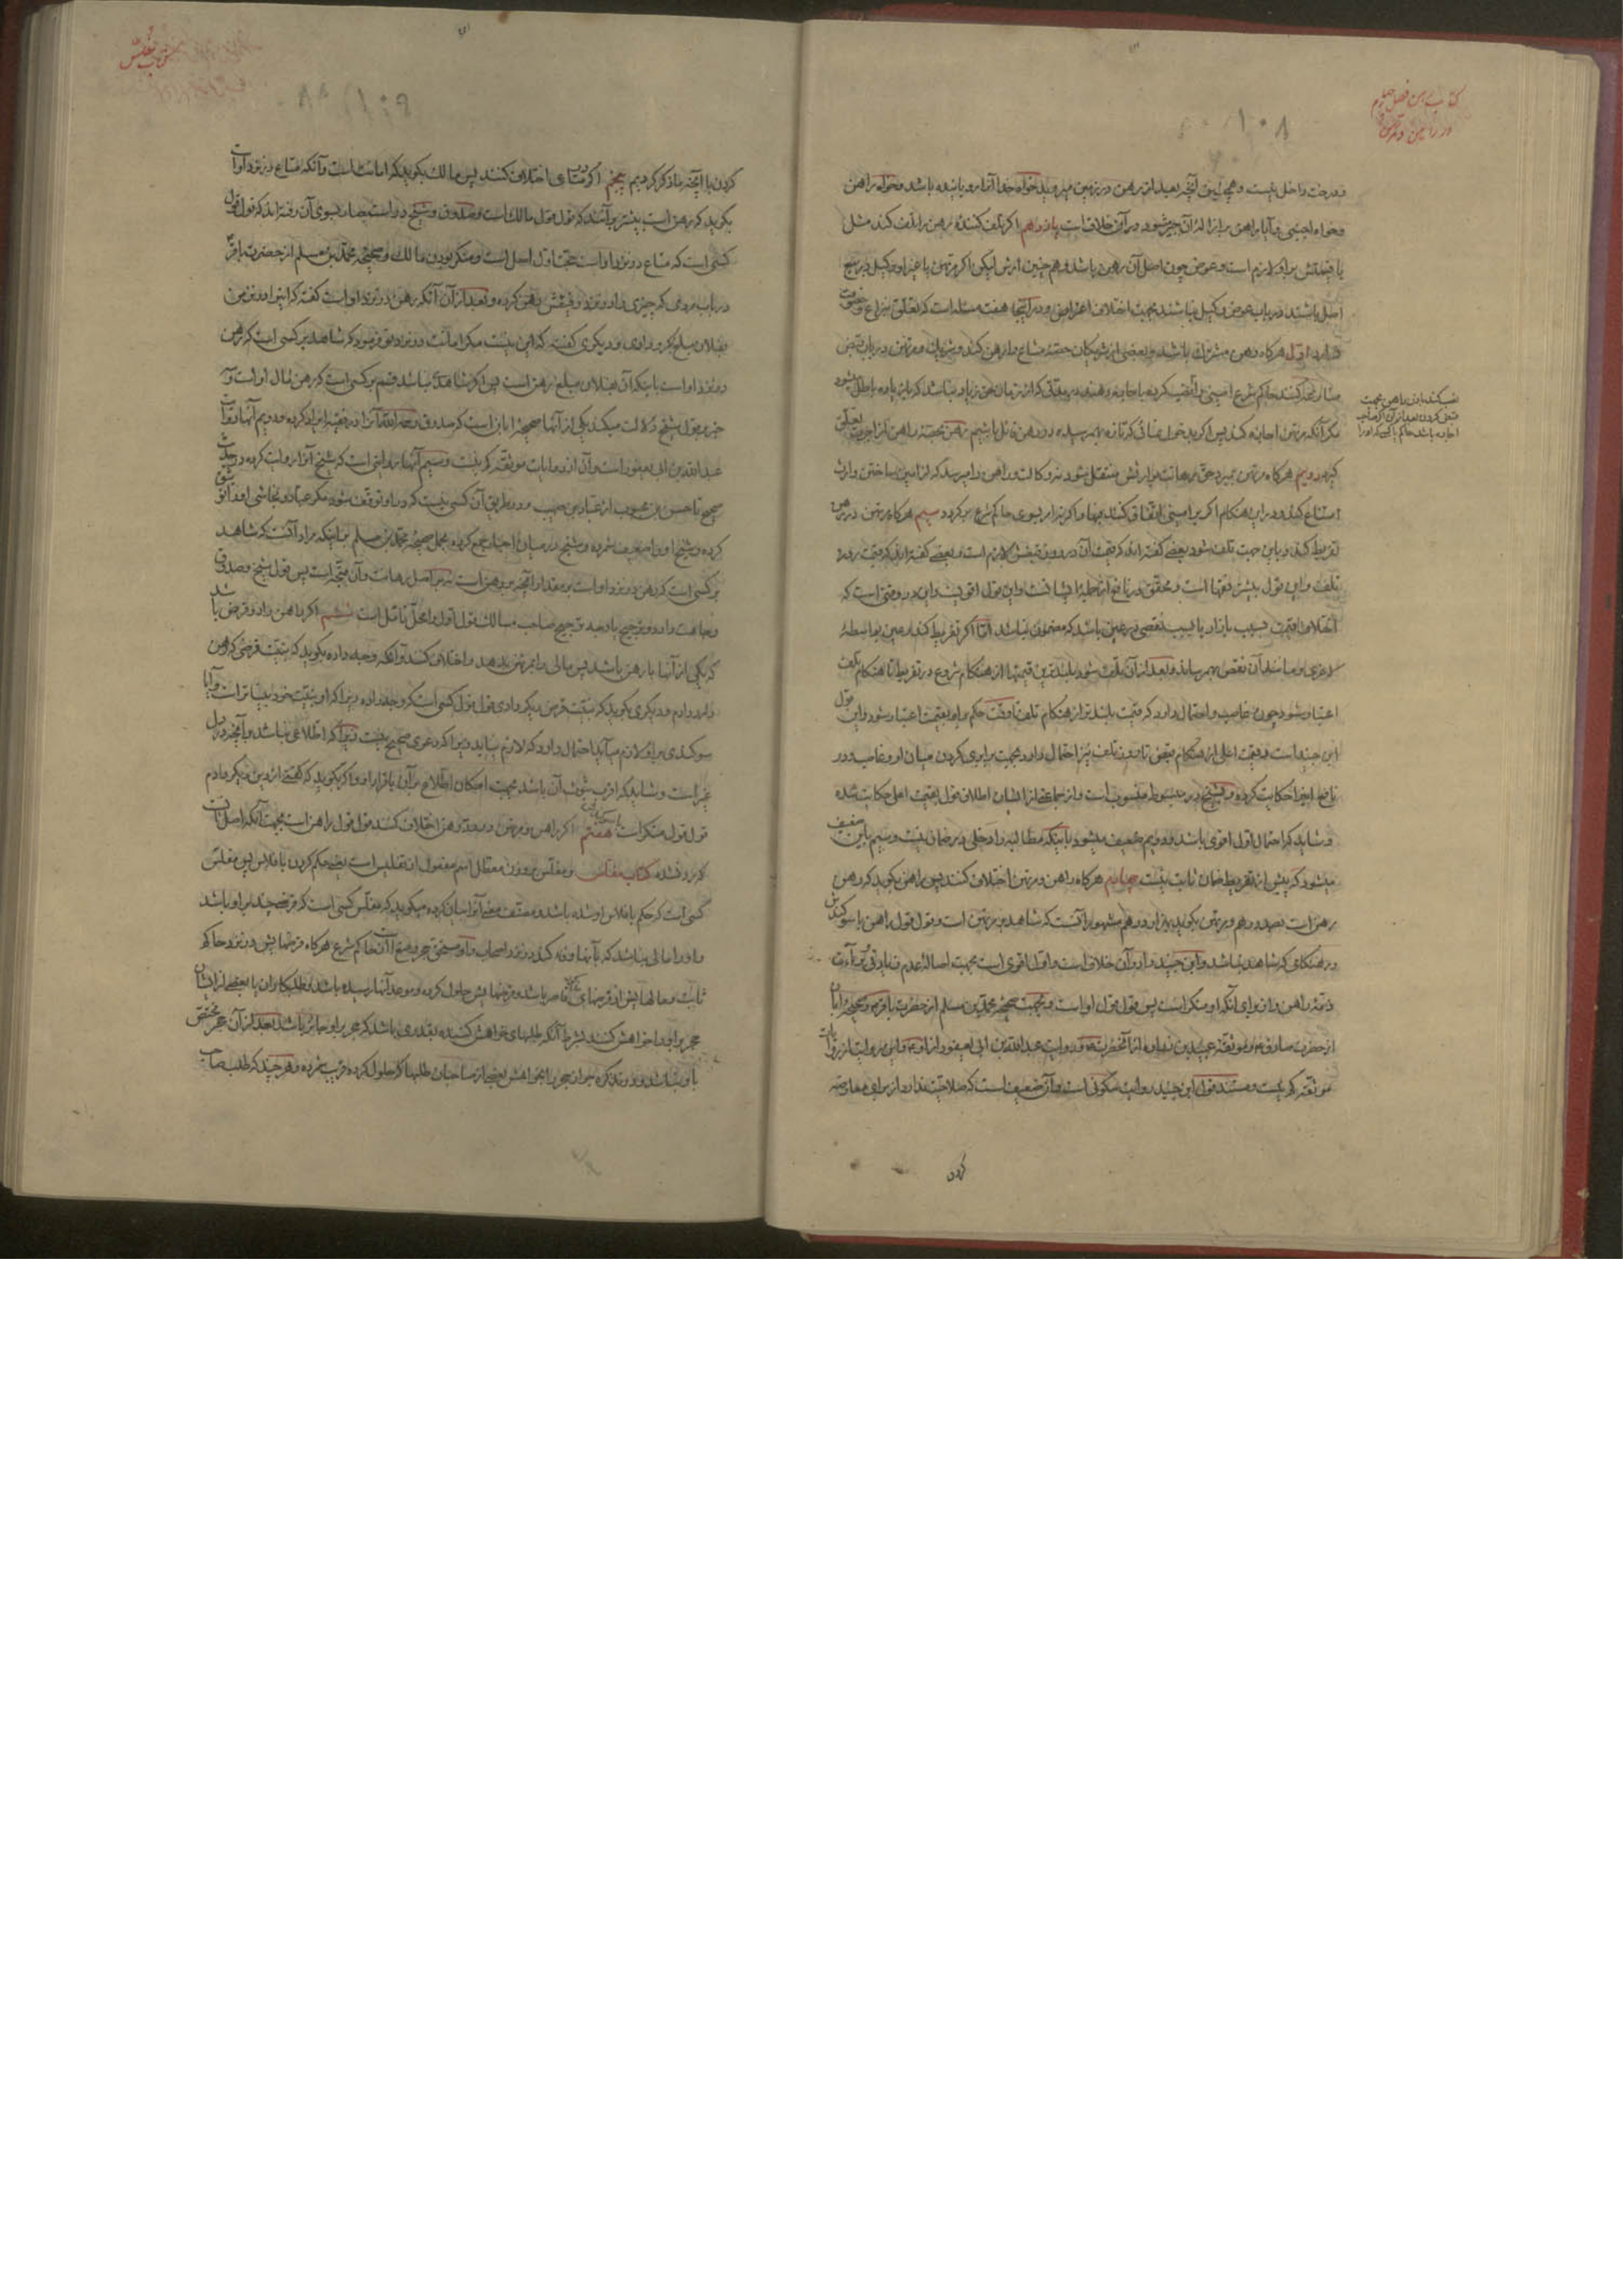 کتاب رهن فصل چهارم
در راهن و مرتهن
۱۰۸
و درخت داخل نیست و همچنین آنچه بعد از رهن در زمین میروید خواه خدا آنرا رویانیده باشد و خواه راهن
و خواه اجنبی و آیا راهن بر ازالهٔ آن جبر میشود در آن خلافست یازدهم اگر تلف کنندهٔ رهن را تلف کند مثل
یا قیمتش بر او لازم است و عوض چون اصل آن رهن باشد و هم چنین ارش لیکن اگر مرتهن یا غیر او وکیل در بیع
اصل باشند در باب عوض وکیل نباشند بجهت اختلاف اغراض و در اینجا هفت مسئله است که تعلق بنزاع و خصومت
دارد اول هرگاه رهن مشترک باشد و بعضی از شریکان حصهٔ مشاع را رهن کند و شریک و مرتهن در باب قبض
منازعه کنند حاکم شرع امینی را نصب کرده باجاره دهد در مدتی که از زمان حق زیاد نباشد که با زیاده باطل میشود
مگر آنکه مرتهن اجازه کند پس اگر بدخول نمائی که تازه بهم رسیده در رهن قائل باشیم رهن بحصهٔ راهن از اجرت تعلق
گیرد دویم هرگاه مرتهن بمیرد حق رهانت بوارثش منتقل شود نه وکالت و راهن را میرسد که از امین ساختن وارث
امتناع کند و در این هنگام اگر بر امینی اتفاق کنند بهتر و اگر نه امر بسوی حاکم شرع برگردد سیم هرگاه مرتهن در رهن
تفریط کند و باین جهت تلف شود بعضی گفته‌اند که قیمت آن در روز قبضش لازم است و بعضی گفته‌اند که قیمت روز
تلف و این قول بیشتر فقها است و محقق در نافع از جملهٔ ایشانست و این قول اقویست و این در وقتی است که
اختلاف قیمت بسبب بازار یا بسبب نقصی در عین باشد که مضمون نباشد امّا اگر تفریط کند و عین بواسطهٔ
لاغری و مانند آن نقص بهم رساند و بعد از آن تلف شود بلندترین قیمتها از هنگام شروع در تفریط تا هنگام تلف
اعتبار شود چون غاصب و احتمال دارد که قیمت بلندتر از هنگام تلف تا وقت حکم بر او بقیمت اعتبار شود و این قول
ابن جنید است و قیمت اعلی از هنگام قبض تا روز تلف نیز احتمال دارد بجهت برابری کردن میان او و غاصب و در
نافع اینرا حکایت کرده و بشیخ در مبسوط منسوب است و از جماعتی از ایشان اطلاق قول بقیمت اعلی حکایت شده
و شاید که احتمال اول اقوی باشد و دویم ضعیف میشود باینکه مطالبه را دخلی در ضمان نیست و سیم باین ضعیف
میشود که پیش از تفریط ضمان ثابت نیست چهارم هرگاه راهن و مرتهن اختلاف کنند پس راهن بگوید که رهن
رهن است بصد درهم و مرتهن بگوید بهزار درهم مشهور آنست که شاهد بر مرتهن است و قول قول راهن با سوگندش
در هنگامی که شاهد نباشد و ابن جنید را در آن خلاف است و اول اقوی است بجهت اصالهٔ عدم زیادتی و برائت
ذمهٔ راهن و از برای آنکه او منکر است پس قول قول او است و بجهت صحیحهٔ محمد بن مسلم از حضرت باقر ع و صحیحهٔ ابان
از حضرت صادق ع و موثقهٔ عبید بن زراره از آنحضرت ع و روایت عبدالله بن ابی یعفور از او ع و این روایت از روایات
موثقه کم نیست و مستند قول ابن جنید روایت سکونی است و آن ضعیف است که صلاحیت ندارد از برای معارضه
کردن
کتاب مفلس
۱۰۹
کردن با آنچه ما ذکر کردیم پنجم اگر در متاعی اختلاف کنند پس مالک بگوید که امانت است و آنکه متاع در نزد او است
بگوید که رهن است بیشتر برآنند که قول قول مالک است و صدوق و شیخ در استبصار بسوی آن رفته‌اند که قول قول
کسی است که متاع در نزد او است حجت اول اصل است و منکر بودن مالک و صحیحهٔ محمد بن مسلم از حضرت باقر ع
در باب مردی که چیزی را در نزد رفیقش رهن کرده و بعد از آن آنکه رهن در نزد او است گفته که این در نزد من
بفلان مبلغ گرو داری و دیگری گفته که این نیست مگر امانت در نزد تو فرمود که شاهد بر کسی است که رهن
در نزد او است باینکه آن بفلان مبلغ رهن است پس اگر شاهدی نباشد قسم بر کسی است که رهن مال او است و سه
خبر بقول شیخ دلالت میکند یکی از آنها صحیحهٔ ابان است که صدوق رحمه الله آنرا در فقیه ایراد کرده و دویم آنها روایت
عبدالله بن ابی یعفور است و آن از روایات موثقه کم نیست و سیم آنها روایتی است که شیخ آنرا روایت کرده در حدیث
صحیح تا حسن بن محبوب از عباد بن صهیب و در طریق آن کسی نیست که در او توقف شود مگر عباد و نجاشی او را توثیق
کرده و شیخ او را ضعیف شمرده و شیخ در میان اخبار جمع کرده بحمل صحیحهٔ محمد بن مسلم بر اینکه مراد آنست که شاهد
بر کسی است که رهن در نزد او است بر مقدار آنچه بر رهن است نه بر اصل رهانت و آن متجه است پس قول شیخ و صدوق
وجاهت دارد و ترجیح یا وجه ترجیح صاحب مسالک قول اول را محل تأمل است ششم اگر راهن دو قرض باشد
که یکی از آنها با رهن باشد پس مالی را بمرتهن بدهد و اختلاف کنند و آنکه وجه داده بگوید که به نیت قرضی که رهن
دارد دادم و دیگری بگوید که به نیت قرض دیگر دادی قول قول کسی است که وجه داده زیرا که او به نیت خود بیناتر است و آیا
سوگندی بر او لازم میآید احتمال دارد که لازم نیاید زیرا که دعوی صحیح نیست چرا که اطلاعی نباشد بر آنچه در دل
غیر است و شاید که اقرب ثبوت آن باشد بجهت امکان اطلاع بر آن باقرار او و اگر بگوید که گفتی از دین دیگر دادم
قول قول منکر است با سوگندش هفتم اگر راهن و مرتهن در قدر رهن اختلاف کنند قول قول راهن است بجهت آنکه اصل آنست
که گرو نشده کتاب مفلس و مفلس بر وزن معطل اسم مفعول از تفلیس است یعنی حکم کردن بافلاس پس مفلس
کسی است که حکم بافلاس او شده باشد و مصنف معنی آنرا بیان کرده میگوید که مفلس کسی است که قرضی چند بر او باشد
و او را مالی نباشد که بآنها وفا کند در نزد اصحاب ما و مستحق حجر و منع از آن حاکم شرع هرگاه قرضهایش در نزد حاکم
ثابت و مالهایش از قرضهای قاصر باشد و قرضهایش حلول کرده و موعد آنها رسیده باشد و طلبکاران یا بعضی از ایشان
حجر بر او را خواهش کنند بشرط آنکه طلبهای خواهش کننده بقدری باشد که حجر بر او جائز باشد بعد از آن حجر مختص
باو نباشد و در تذکره جواز حجر را بخواهش بعضی از صاحبان طلبها که حلول کرده قریب شمرده و هر چند که طلب صاحب